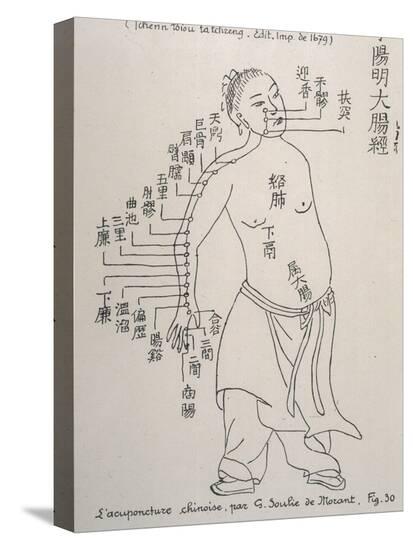 (Tchenn Tsiou ta tchreng. Edit. Imp. de 1679)
陽明大腸經
迎香
禾髎
扶突
天鼎
巨骨
肩髃
臂臑
五里
肘髎
曲池
三里
上廉
下廉
溫溜
偏歷
陽谿
合谷
三間
二間
商陽
絡肺
下鬲
属大腸
L'acuponcture chinoise, par G. Soulié de Morant, Fig. 30